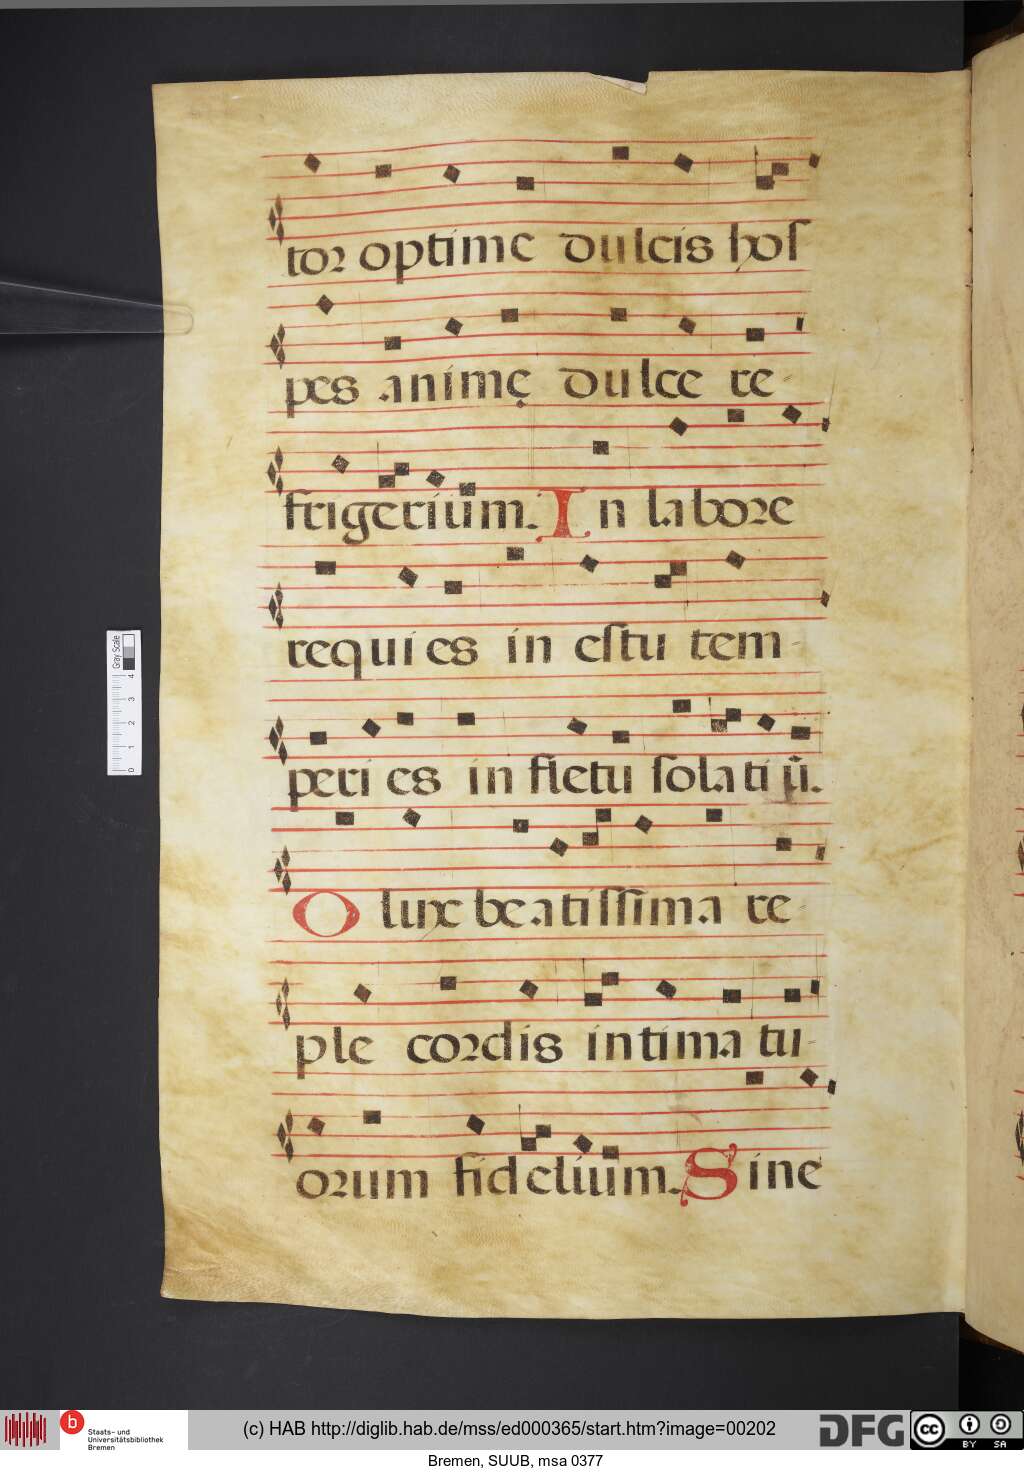 toꝛ optime dulcis hoſ
pes animę dulce re-
frigeriūm. In laboꝛe
requies in eſtu tem-
peri es in fletu ſolatiū.
O lux beatiſſima re-
ple coꝛdis intima tu-
oꝛum fidelium. Sine
Gray Scale
0 1 2 3 4
b
Staats- und
Universitätsbibliothek
Bremen
(c) HAB http://diglib.hab.de/mss/ed000365/start.htm?image=00202
DFG
cc BY SA
Bremen, SUUB, msa 0377